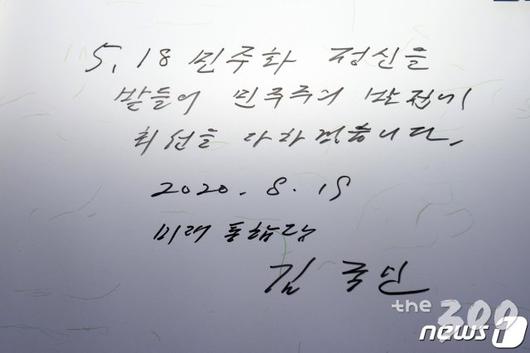 5.18 민주화 정신을
받들어 민주주의 발전에
최선을 다하겠습니다.
2020. 8. 19
미래통합당
김종인
the 300
news1